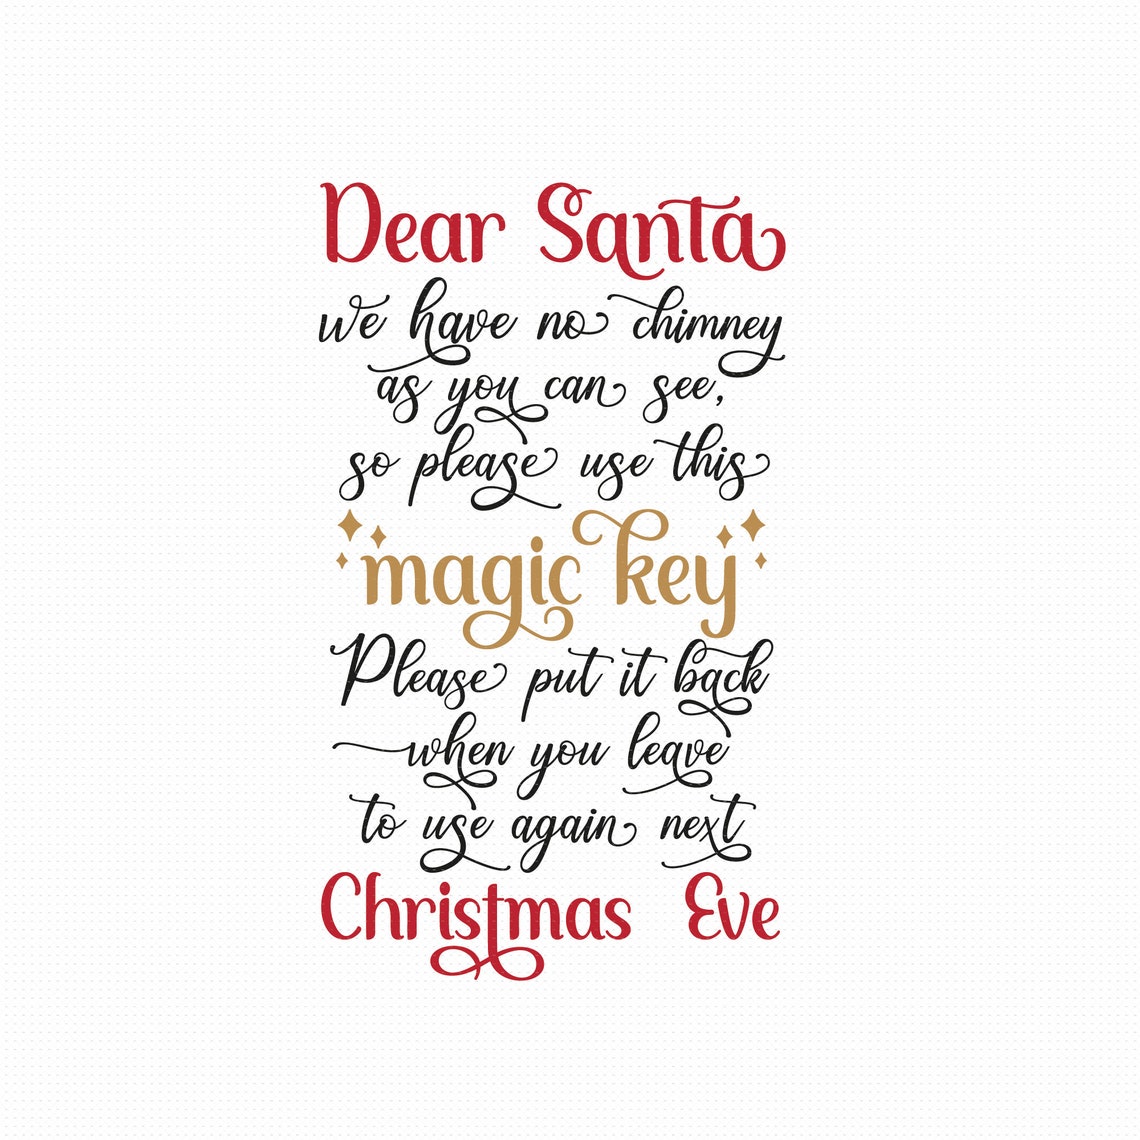 Dear Santa
we have no chimney
as you can see,
so please use this
magic key
Please put it back
when you leave
to use again next
Christmas Eve